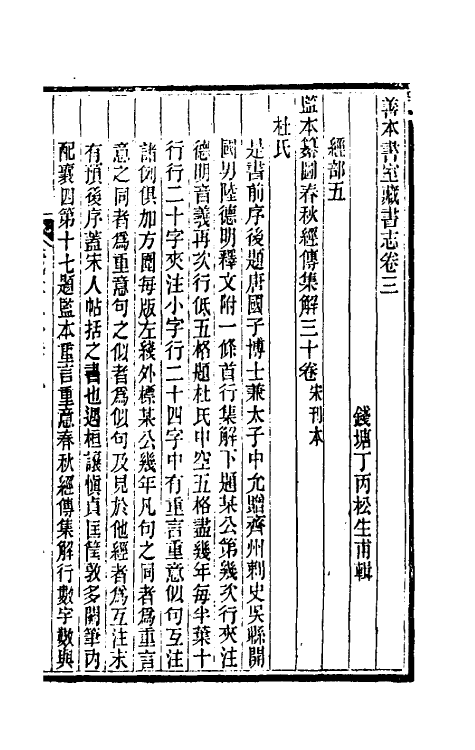 善本書室藏書志卷三
錢塘丁丙松生甫輯
經部五
監本纂圖春秋經傳集解三十卷 宋刊本
杜氏
是書前序後題唐國子博士兼太子中允贈齊州刺史吳縣開
國男陸德明釋文附一條首行集解下題某公第幾次行夾注
德明音義再次行低五格題杜氏中空五格盡幾年每半葉十
行行二十字夾注小字行二十四字中有重言重意似句互注
諸例俱加方圍每版左綫外標某公幾年凡句之同者爲重言
意之同者爲重意句之似者爲似句及見於他經者爲互注末
有預後序蓋宋人帖括之書也遇桓讓愼貞匡筐敦多闕筆內
配襄四第十七題監本重言重意春秋經傳集解行數字數與